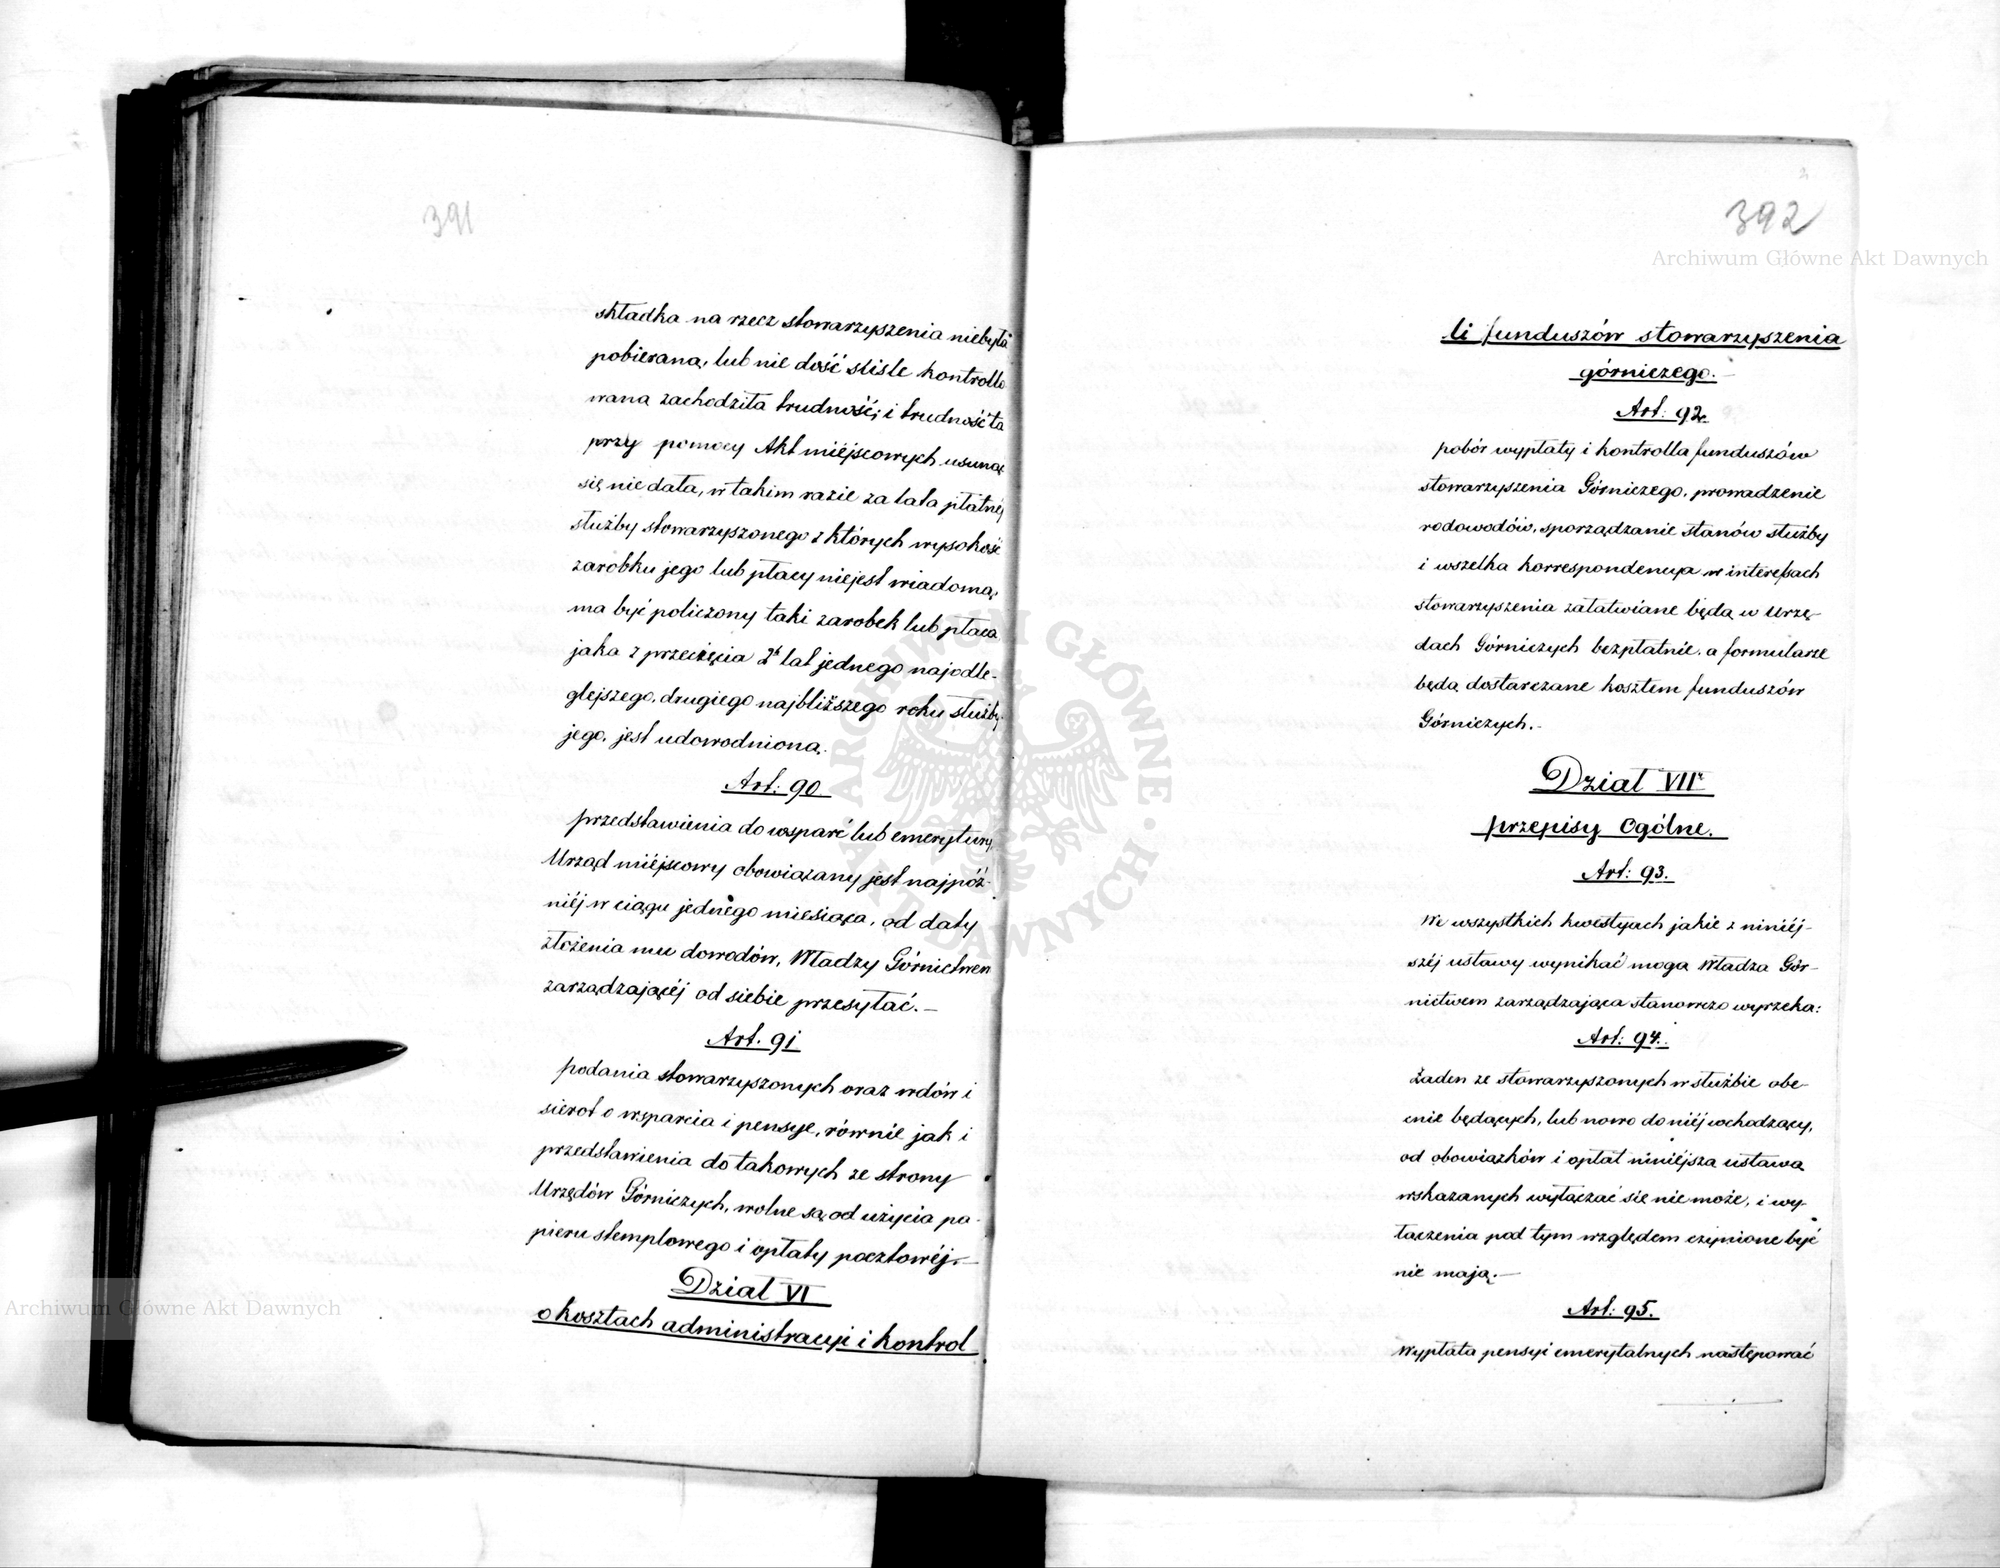 391
składka na rzecz stowarzyszenia niebyła
pobieraną, lub nie dość sciśle kontrollo
wana zachodziła trudność; i trudność ta
przy pomocy Akt miéjscowych usunąć
się nie dała, w takim razie za lata płatnéj
służby stowarzyszonego z których wysokość
zarobku jego lub płacy niejest wiadomą,
ma być policzony taki zarobek lub płaca
jaka z przecięcia 2ch lat jednego najodle-
glejszego, drugiego najbliższego roku służby
jego, jest udowodnioną.
Art: 90
przedstawienia do wsparć lub emerytury,
Urząd miéjscowy obowiązany jest najpóź-
niéj w ciągu jednego miesiąca, od daty
złożenia mu dowodów, Władzy Górnictwem
zarządzającéj od siebie przesyłać.—
Art. 91
podania stowarzyszonych oraz wdów i
sierot o wsparcia i pensye, równie jak i
przedstawienia do takowych ze strony
Urzędów Górniczych, wolne są od użycia pa-
pieru stemplowego i opłaty pocztowéj.—
Dział VI
o kosztach administracyi i kontrol
392
Archiwum Główne Akt Dawnych
li funduszów stowarzyszenia
górniczego.—
Art: 92.
pobór wypłaty i kontrolla funduszów
stowarzyszenia Górniczego, prowadzenie
rodowodów, sporządzanie stanów służby
i wszelka korrespondencya w interessach
stowarzyszenia załatwiane będą w Urzę-
dach Górniczych bezpłatnie, a formularze
będą dostarczane kosztem funduszów
Górniczych.—
Dział VII
przepisy Ogólne.
Art: 93.
We wszystkich kwestyach jakie z niniéj-
széj ustawy wynikać mogą Władza Gór-
nictwem zarządzająca stanowczo wyrzeka:
Art: 94.
Żaden ze stowarzyszonych w służbie obe-
cnie będących, lub nowo do niéj wchodzący,
od obowiązków i opłat niniéjszą ustawą
wskazanych wyłączać się nie może, i wy-
łączenia pod tym względem czynione być
nie mają.—
Art: 95.
Wypłata pensyi emerytalnych następować
Archiwum Główne Akt Dawnych
ARCHIWUM GŁÓWNE AKT DAWNYCH